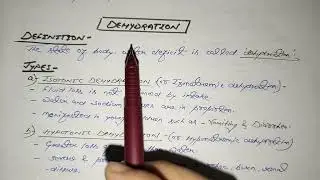 DEHYDRATION
DEFINITION-
The state of body water deficit is called "dehydration".
TYPES-
a) ISOTONIC DEHYDRATION (or Isonatremic dehydration)-
- Fluid loss is not by intake.
- Water and sodium are in proportion.
- manifestation in young such as - Vomiting & Diarrhoea.
b) HYPOTONIC DEHYDRATION (or Hyponatremic dehydration)-
- Greater loss water.
renal
disease.